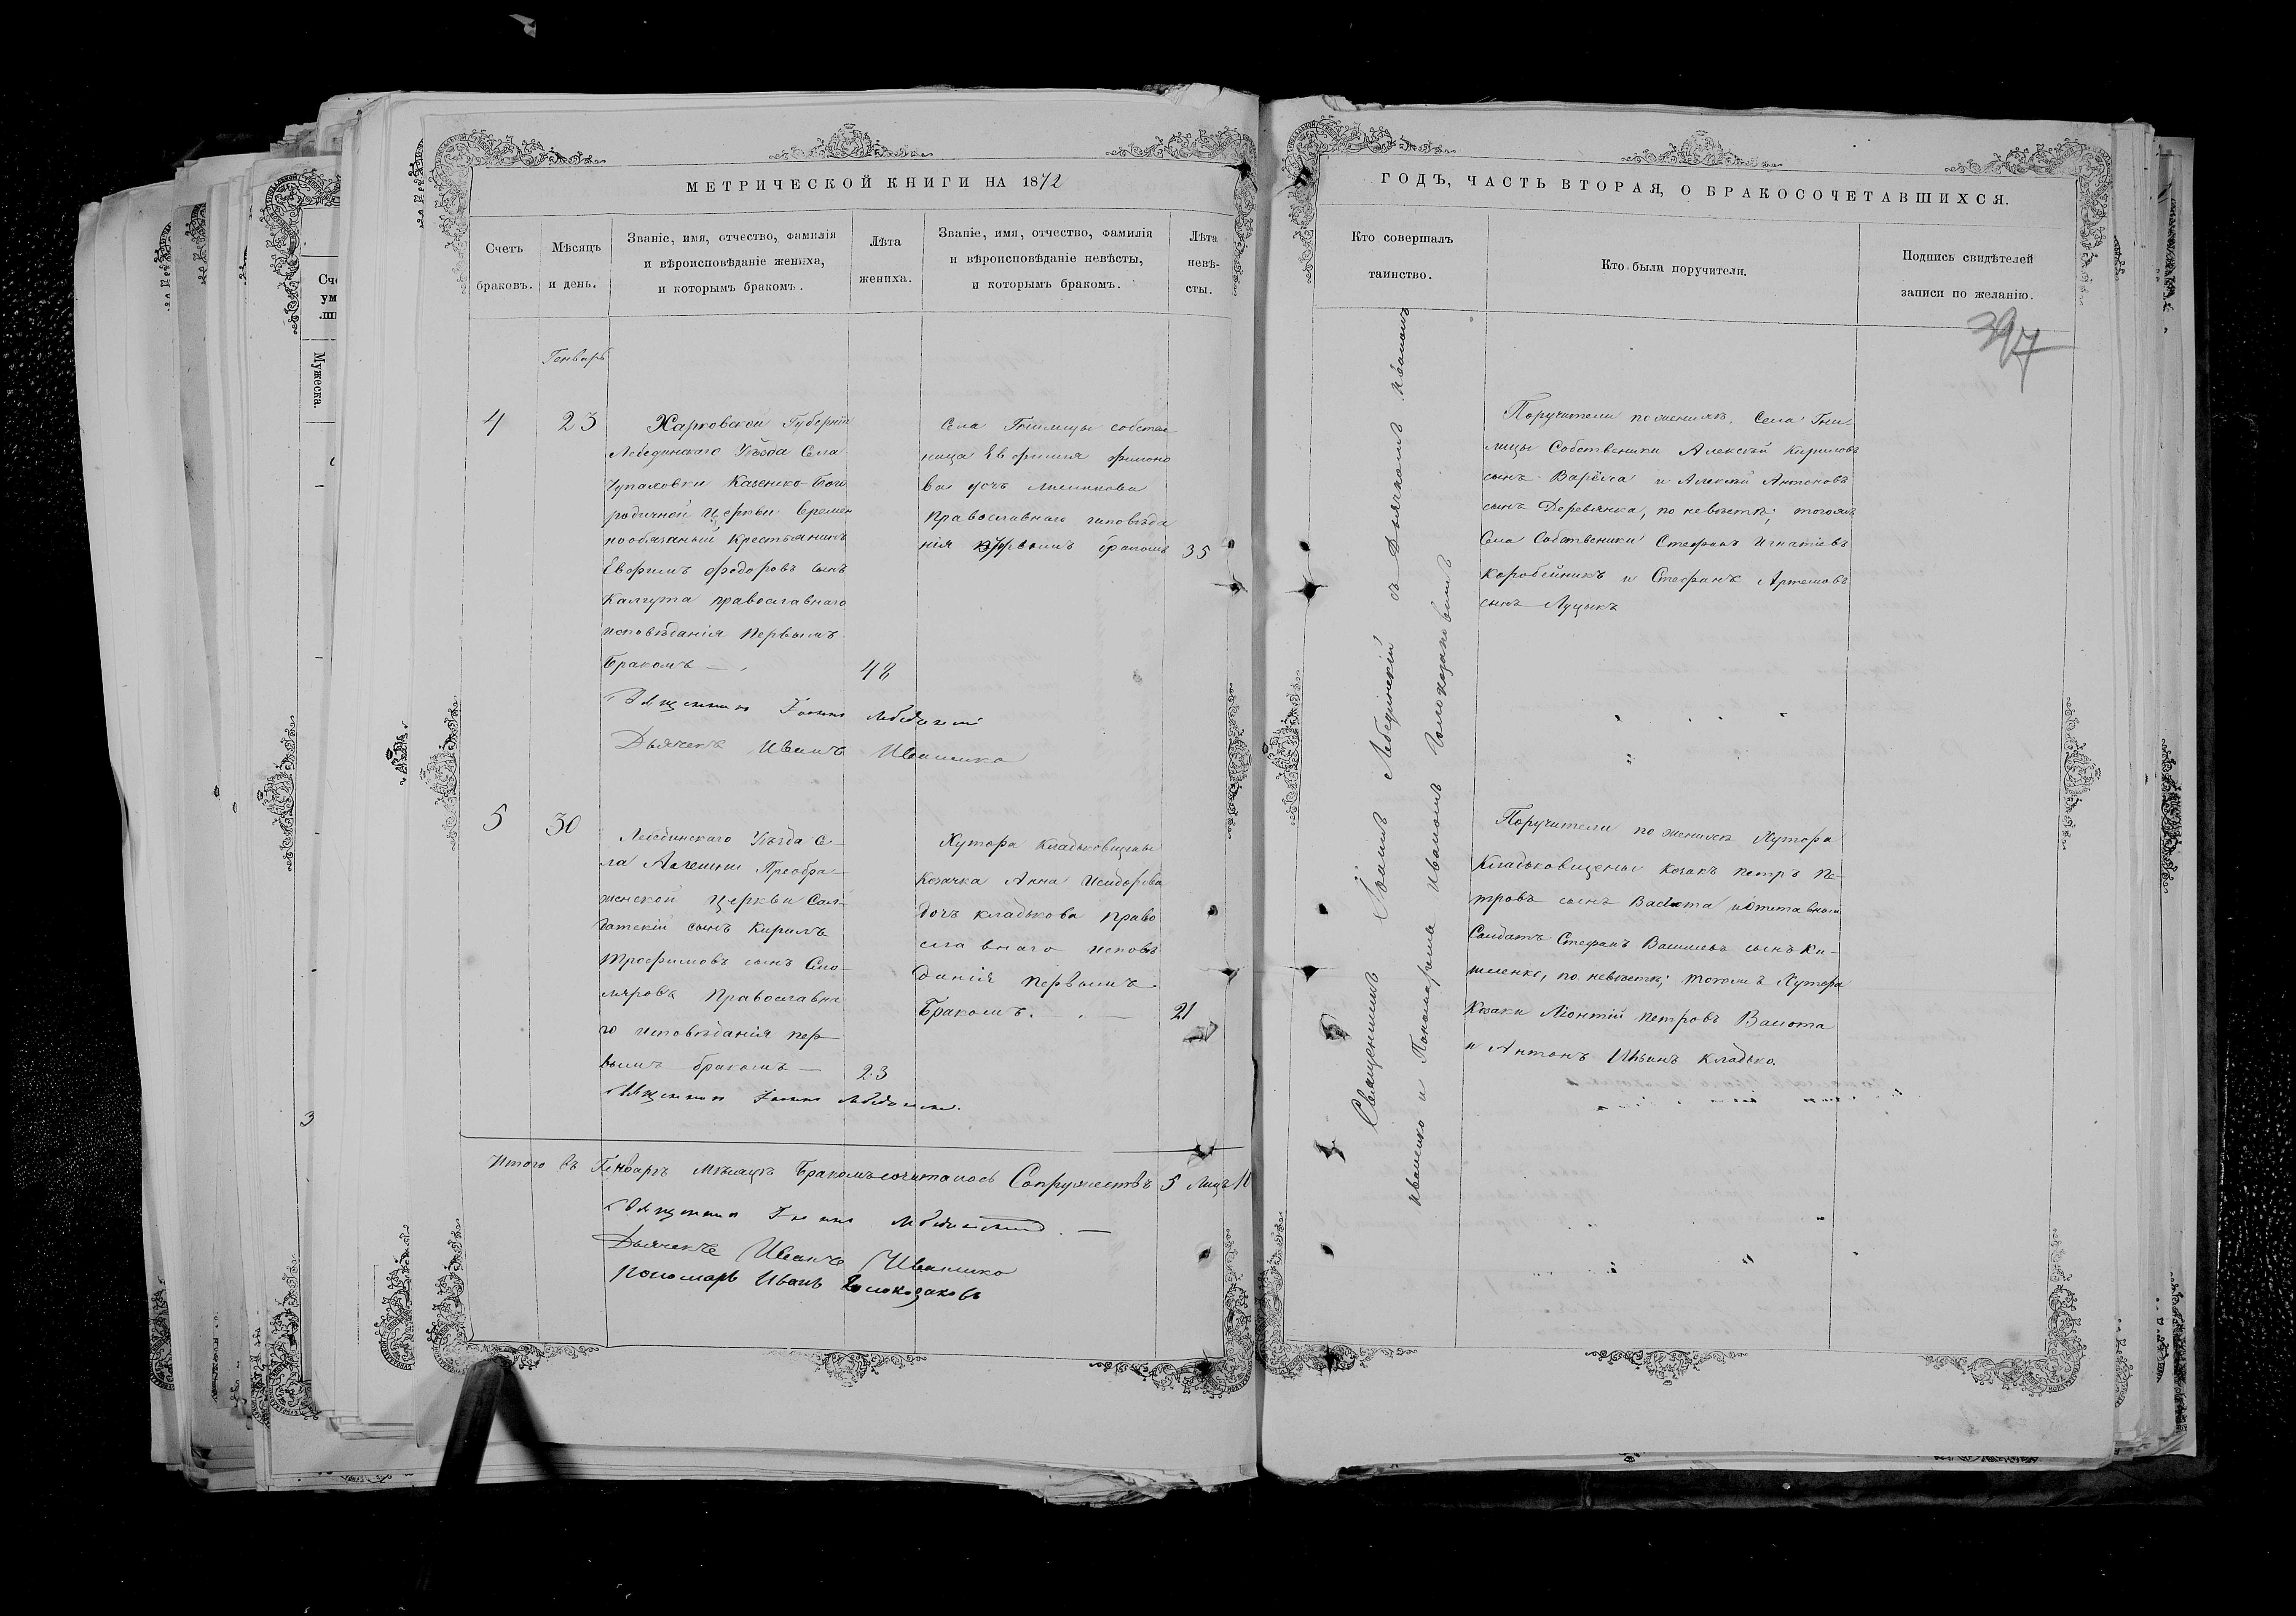 МЕТРИЧЕСКОЙ КНИГИ НА 1872
Счетъ
браковъ.
Мѣсяцъ
и день.
Званіе, имя, отчество, фамилія
и вѣроисповѣданіе жениха,
и которымъ бракомъ.
Лѣта
жениха.
Званіе, имя, отчество, фамилія
и вѣроисповѣданіе невѣсты,
и которымъ бракомъ.
Лѣта
невѣ-
сты.
Генварь
4
23
Харковской Губерніи
Лебединскаго Уѣзда Села
Казенско-Бого
родичной Церкви времен
нообязаный Крестьянинъ
Евфимъ Федоровъ сынъ
Калгута православнаго
исповѣданія первымъ
бракомъ —
48
Села Гнилицы собствен
ница Евфимія Филимо
ва дочь
Православнаго исповѣда
нія первымъ бракомъ
35
Священникъ Іоаннъ Лебединскій
Дьячекъ Иванъ Иваненко
5
30
Лебединскаго Уѣзда Се-
ла Алешни Преобра-
женской Церкви Сол-
датскій сынъ Кирилъ
Трофимовъ сынъ Сто-
ляровъ Православна
го исповѣданія пер
вымъ бракомъ —
23
Хутора Кладьковщены
Козачка Анна Исидорова
дочь Кладькова Право
славнаго исповѣ
данія первымъ
Бракомъ. —
21
Священникъ Іоаннъ Лебединскій.
Итого въ Генварѣ Мѣсяцѣ Бракомъ сочиталось Супружествъ 5 Лицъ 10
Священникъ Іоаннъ Лебединскій —
Дьячекъ Иванъ Иваненко
Пономарь Иванъ Голоказаковъ
ГОДЪ, ЧАСТЬ ВТОРАЯ, О БРАКОСОЧЕТАВШИХСЯ.
Кто совершалъ
таинство.
Кто были поручители.
Подпись свидѣтелей
записи по желанію.
397
Священникъ Іоаннъ Лебединскій съ Дьячкомъ Иваномъ
Иваненко и Пономаремъ Иваномъ Голоказаковымъ
Поручители по женихѣ, Села Гни-
лицы Собственики Алексѣй Кириловъ
сынъ Варѣха и Алексѣй Антоновъ
сынъ Деревянка, по невѣстѣ; тогожъ
Села Собственики Стефанъ Игнатіевъ
Коробейникъ и Стефанъ Артемовъ
сынъ Луцыкъ
Поручители по женихѣ Хутора
Кладьковщены Козакъ Петръ Пе-
тровъ сынъ Васюта и Отставный
Солдатъ Стефанъ Васильевъ сынъ Ки-
шленко, по невѣстѣ; тогожъ Хутора
Козаки Ліонтій Петровъ Васюта
и Антонъ Ильинъ Кладько.